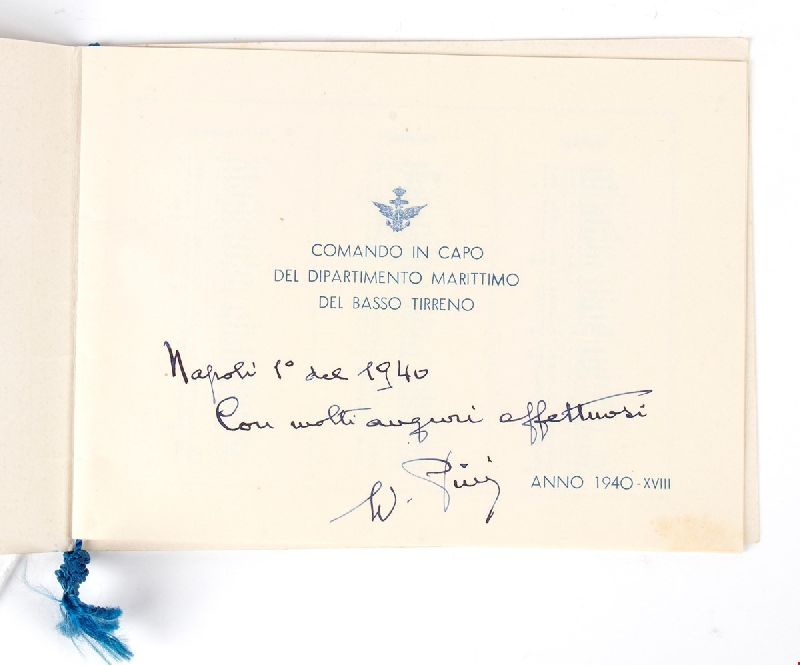 COMANDO IN CAPO
DEL DIPARTIMENTO MARITTIMO
DEL BASSO TIRRENO
Napoli 1° del 1940
Con molti auguri affettuosi
W. Pini
ANNO 1940-XVIII